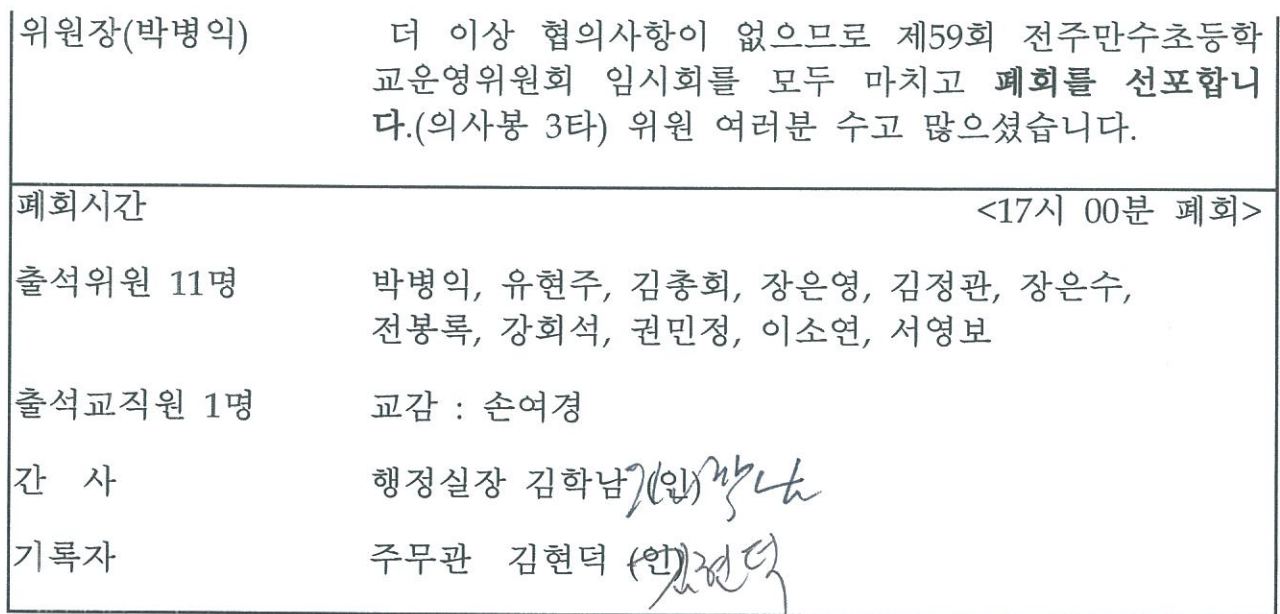 위원장(박병익) 더 이상 협의사항이 없으므로 제59회 전주만수초등학
교운영위원회 임시회를 모두 마치고 폐회를 선포합니
다.(의사봉 3타) 위원 여러분 수고 많으셨습니다.
폐회시간 <17시 00분 폐회>
출석위원 11명 박병익, 유현주, 김총회, 장은영, 김정관, 장은수,
전봉록, 강회석, 권민정, 이소연, 서영보
출석교직원 1명 교감 : 손여경
간 사 행정실장 김학남 (인)
기록자 주무관 김현덕 (인) 김현덕